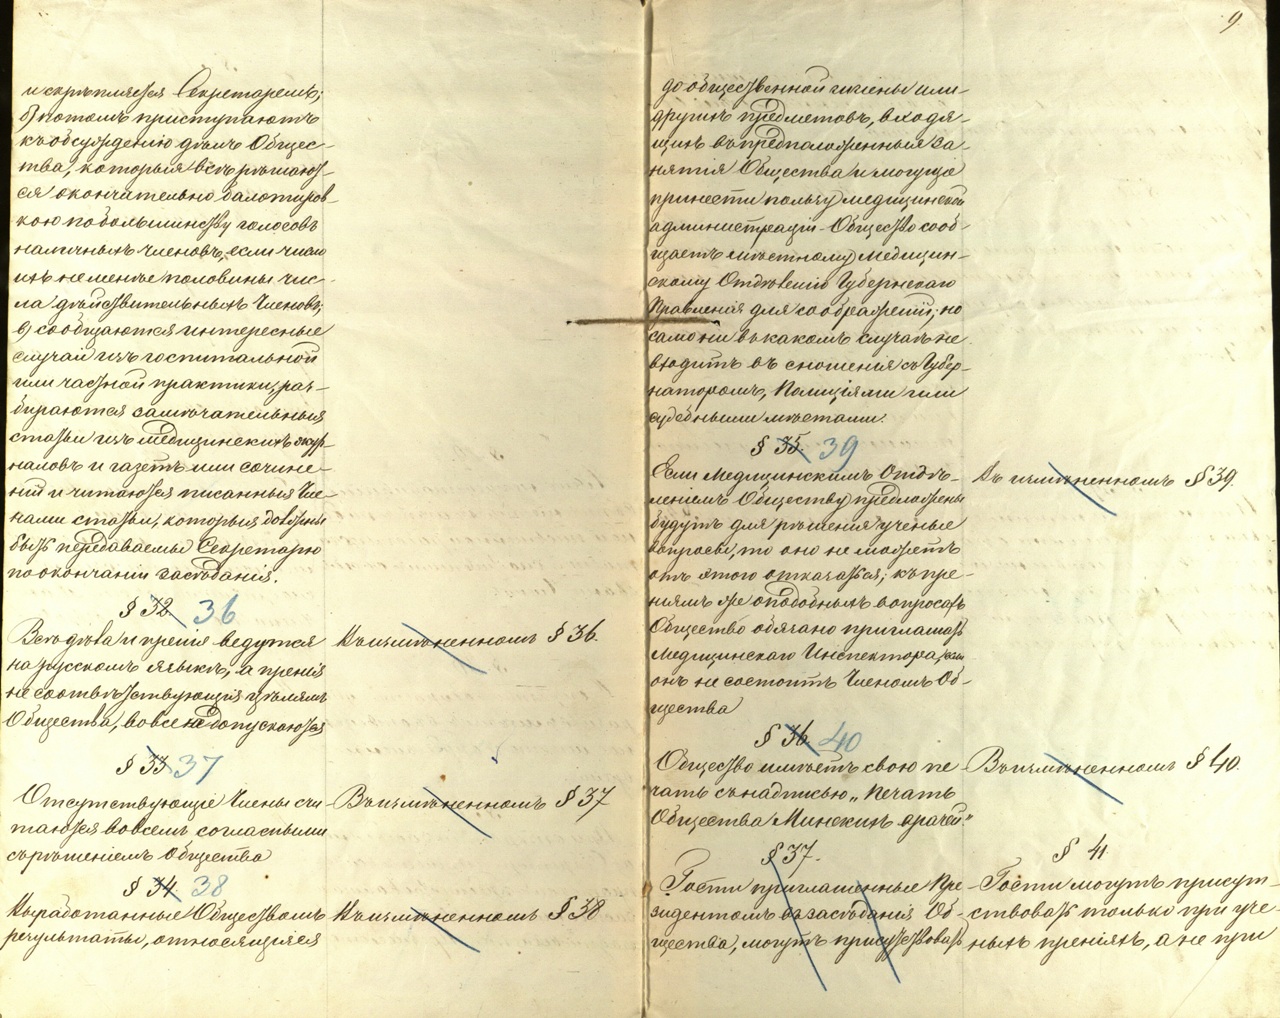 и скрѣпляется Секретаремъ;
б) потомъ приступаютъ
къ обсужденію дѣлъ Общес-
тва, которыя всѣ рѣшают-
ся окончательно балотиров-
кою по большинству голосовъ
наличныхъ членовъ, если число
ихъ не менѣе половины чис-
ла дѣйствительныхъ Членовъ;
в) сообщаются интересные
случаи изъ госпитальной
или частной практики, раз-
бираются замѣчательныя
статьи изъ медицинскихъ жур-
наловъ и газетъ или сочине-
ній и читаются писанныя Чле-
нами статьи, которыя должны
быть передаваемы Секретарю
по окончаніи засѣданія.
§ 32. 36
Всѣ дѣла и пренія ведутся
на русскомъ языкѣ, а пренія
не соотвѣтствующія цѣлямъ
Общества, вовсе не допускаются
Въ измѣненномъ § 36.
§ 33 37
Отсутствующіе Члены счи-
таются вовсемъ согласными
съ рѣшеніемъ Общества
Въ измѣненномъ § 37
§ 34 38
Выработанные Обществомъ
результаты, относящіеся
Въ измѣненномъ § 38
9.
до общественной гигіены или
другихъ предметовъ, входя-
щихъ въ предположенныя за-
нятія Общества и могущіе
принести пользу медицинской
администраціи - Общество сооб-
щаетъ мѣстному Медицин-
скому Отдѣленію Губернскаго
Правленія для соображеній; но
само ни въ какомъ случаѣ не
входитъ въ сношенія съ Губер-
наторомъ, Полиціями или
судебными мѣстами.
§ 35. 39
Если Медицинскимъ Отдѣ-
леніемъ Обществу предложены
будутъ для рѣшенія ученые
вопросы, то оно не можетъ
отъ этого отказаться; къ пре-
ніямъ же о подобныхъ вопросахъ
Общество обязано приглашать
Медицинскаго Инспектора, если
онъ не состоитъ Членомъ Об-
щества
Въ измѣненномъ § 39.
§ 36. 40
Общество имѣетъ свою пе-
чать съ надписью „Печать
Общества Минскихъ врачей“
Въ измѣненномъ § 40.
§ 37.
Гости приглашенные Пре-
зидентомъ въ засѣданія Об-
щества, могутъ присутствовать
§ 41
Гости могутъ присут-
ствовать только при уче-
ныхъ преніяхъ, а не при